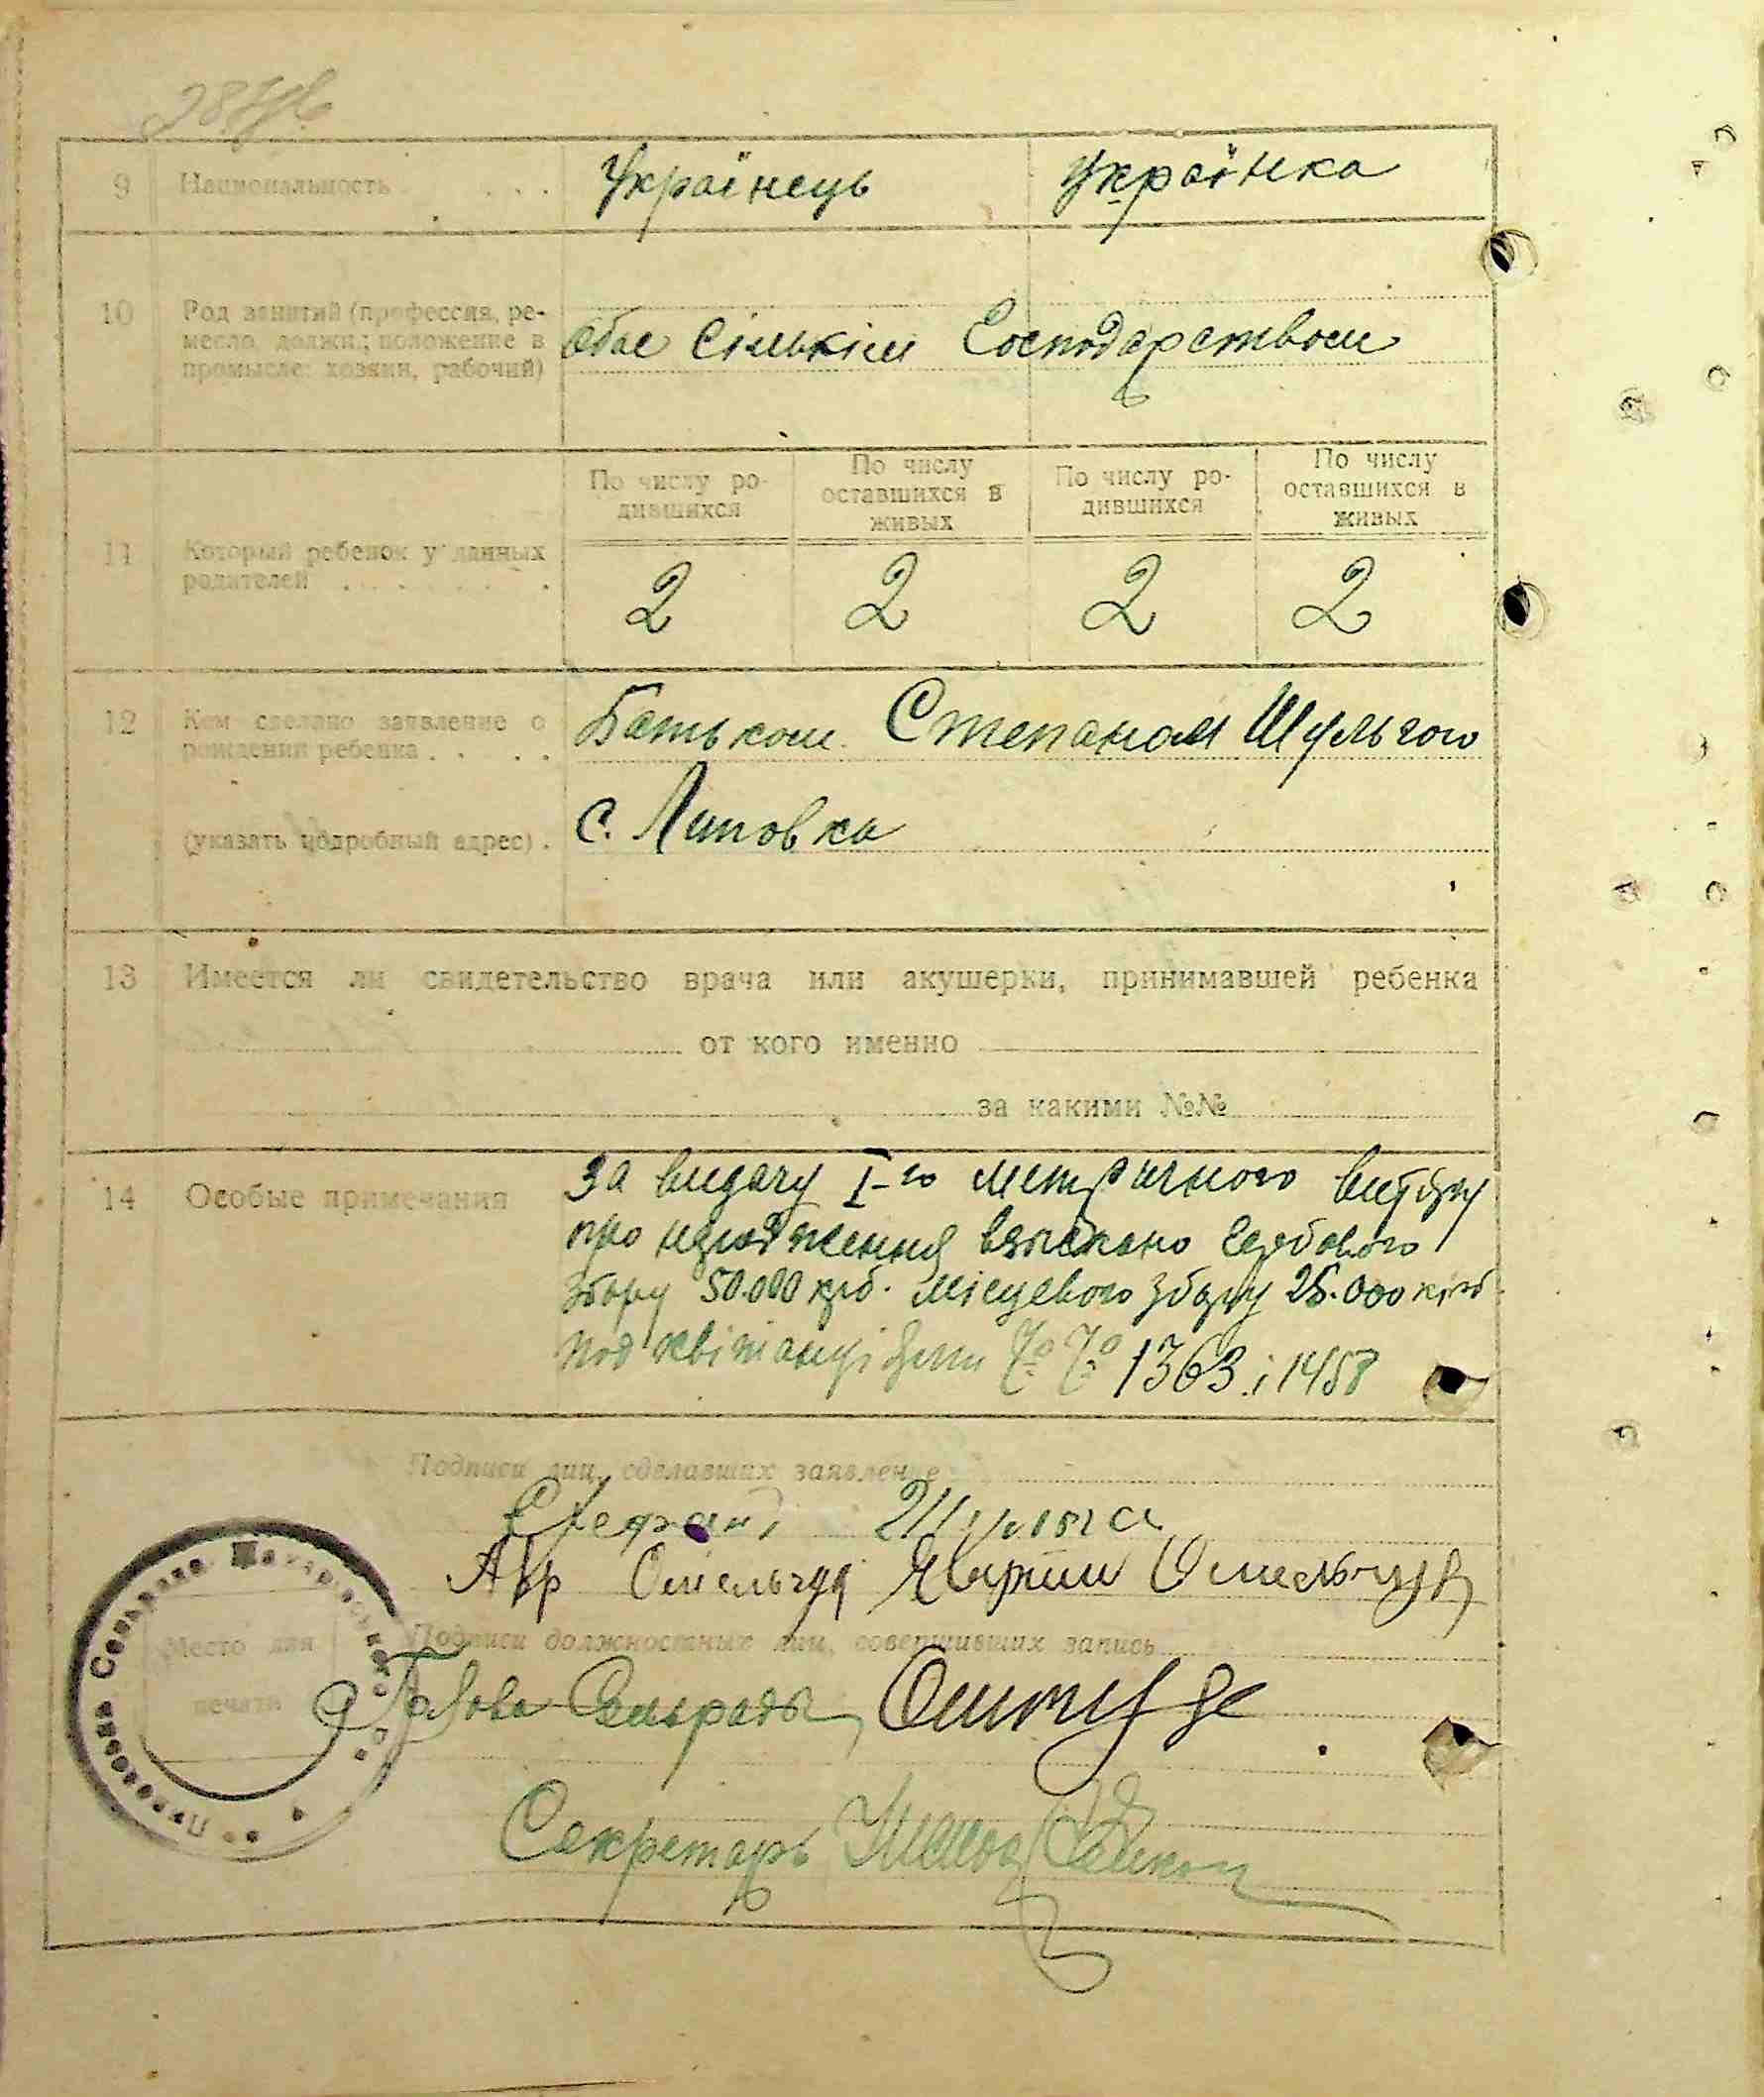 9 Национальность . . . Українець Українка
10 Род занятий (профессия, ре-
месло, должн.; положение в
промысле: хозяин, рабочий)
обое сільскім Господарством
По числу ро-
дившихся
По числу
оставшихся в
живых
По числу ро-
дившихся
По числу
оставшихся в
живых
11 Который ребенок у данных
родителей
2 2 2 2
12 Кем сделано заявление о
рождении ребенка . . . .
Батьком Степаном Шульгою
(указать подробный адрес) . с. Липовка
13 Имеется ли свидетельство врача или акушерки, принимавшей ребенка
от кого именно
за какими №№
14 Особые примечания
За видачу I-го метричного витягу
про народження взискано Гербового
збору 50.000 крб. місцевого збору 25.000 крб.
под квітанціями №№ 1363 і 1458
Подписи лиц, сделавших заявление
Стефан Шульга
Авр Омельчук Омельчук
Подписи должностных лиц, совершивших запись
Место для
печати
Голова Сельради
Секретарь